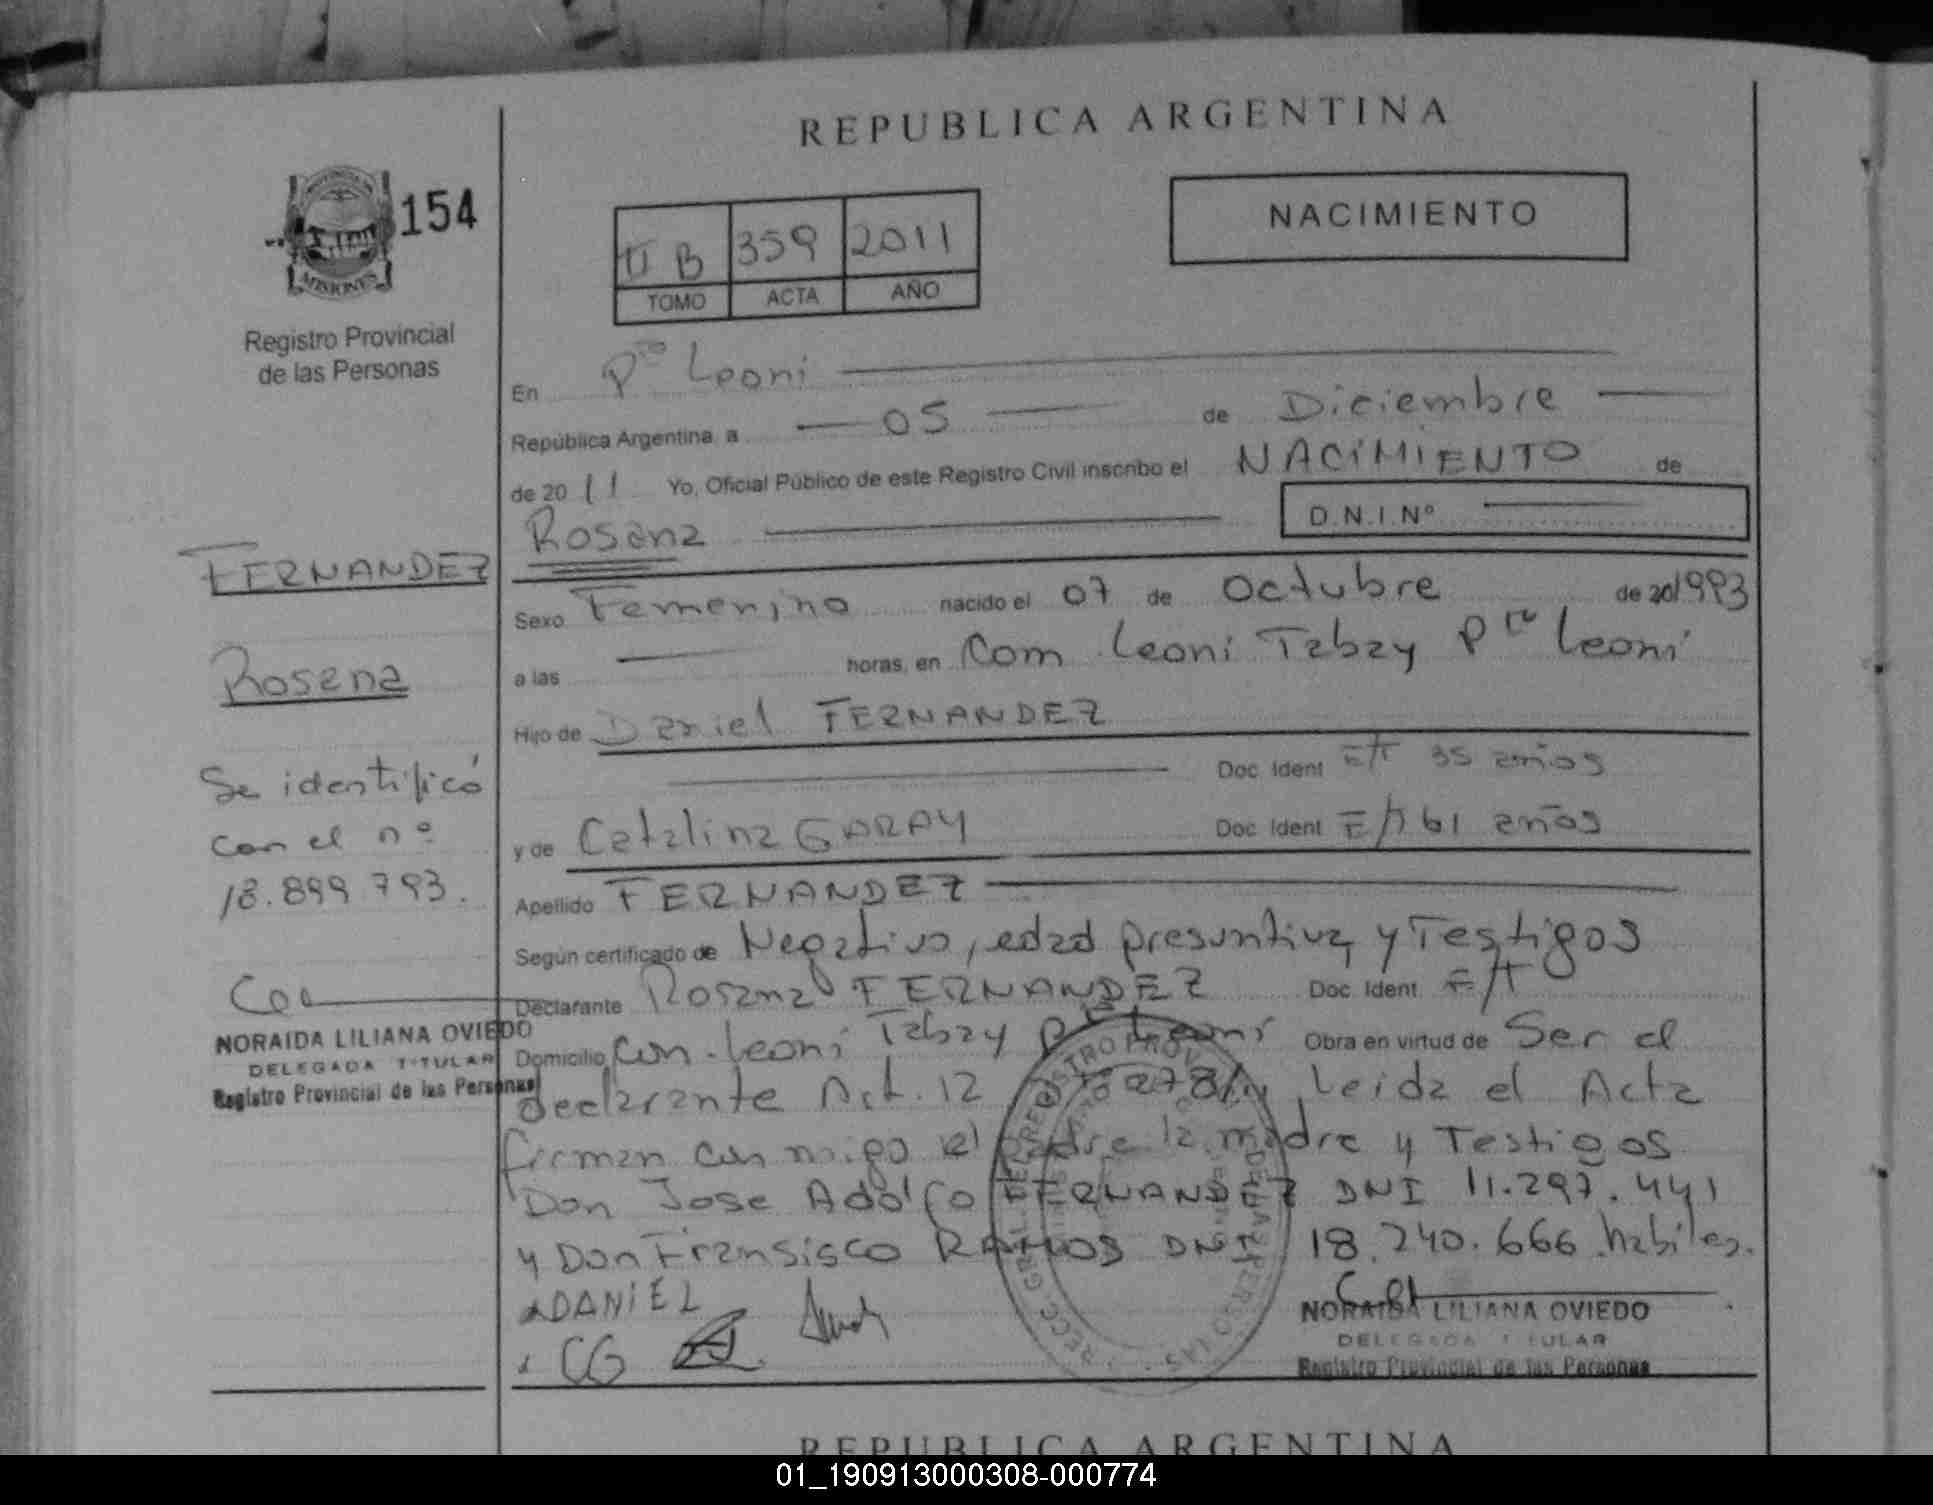 REPUBLICA ARGENTINA
154
MISIONES
Registro Provincial
de las Personas
II B 359 2011
TOMO ACTA AÑO
NACIMIENTO
En Pto Leoni
República Argentina, a 05 de Diciembre
de 2011 Yo, Oficial Público de este Registro Civil inscribo el NACIMIENTO de
Rosana D.N.I. Nº
Sexo Femenino nacido el 07 de Octubre de 20 1993
a las horas, en Com Leoni Tabay Pto Leoni
Hijo de Daniel FERNANDEZ
Doc. Ident E/T 35 años
y de Catalina GARAY Doc. Ident E/T 61 años
Apellido FERNANDEZ
Según certificado de Negativo, edad presuntiva y Testigos
Declarante Rosana FERNANDEZ Doc. Ident E/T
Domicilio Com. Leoni Tabay Pto Leoni Obra en virtud de Ser el
declarante Art. 12 Leida el Acta
firman con migo el padre la madre y Testigos
Don Jose Adolfo FERNANDEZ DNI 11.297.441
y Don Fransisco RAMOS DNI 18.240.666 habiles.
DANIEL
CG
NORAIDA LILIANA OVIEDO
DELEGADA TITULAR
Registro Provincial de las Personas
FERNANDEZ
Rosana
Se identificó
con el nº
18.899.793.
NORAIDA LILIANA OVIEDO
DELEGADA TITULAR
Registro Provincial de las Personas
REPUBLICA ARGENTINA
01_190913000308-000774